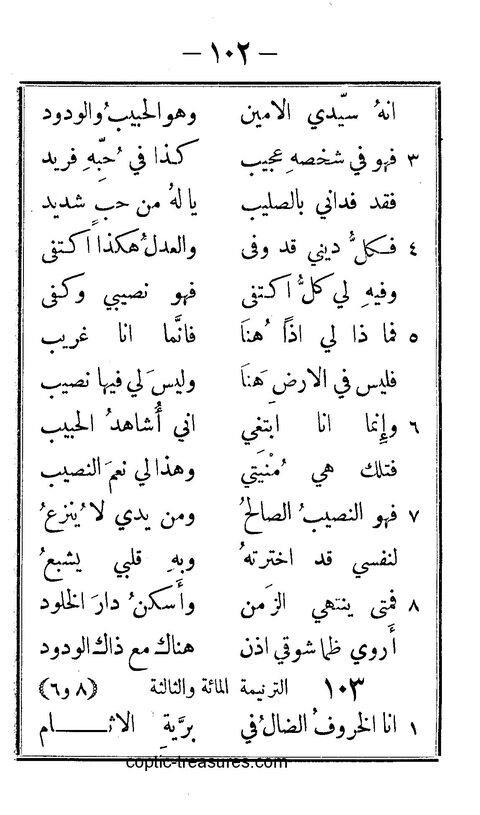 — ١٠٢ —
انهُ سيّدي الامين وهو الحبيبُ والودود
٣ فهو في شخصهِ عجيب كذا في حُبِّهِ فريد
فقد فداني بالصليب يا لهُ من حبٍ شديد
٤ فكلُّ ديني قد وفى والعدلُ هكذا اكتفى
وفيهِ لي كلُّ اكتفى فهو نصيبي وكفى
٥ فما ذا لي اذًا هُنَا فانَّما انا غريب
فليس في الارضِ هَنَا وليسَ لي فيها نصيب
٦ وإِنما انا ابتغي اني أُشاهدُ الحبيب
فتلك هي مُنْيَتي وهذا لي نعمَ النصيب
٧ فهو النصيبُ الصالحُ ومن يدي لا يُنزعُ
لنفسي قد اخترتهُ وبهِ قلبي يشبعُ
٨ فمتى ينتهي الزَمن وأَسكنُ دارَ الخلود
أَروي ظما شوقي اذن هناك مع ذاك الودود
١٠٣ الترنيمة المائة والثالثة (٨ و٦)
١ انا الخروفُ الضالُ في برَّيةِ الاثـــام
coptic-treasures.com